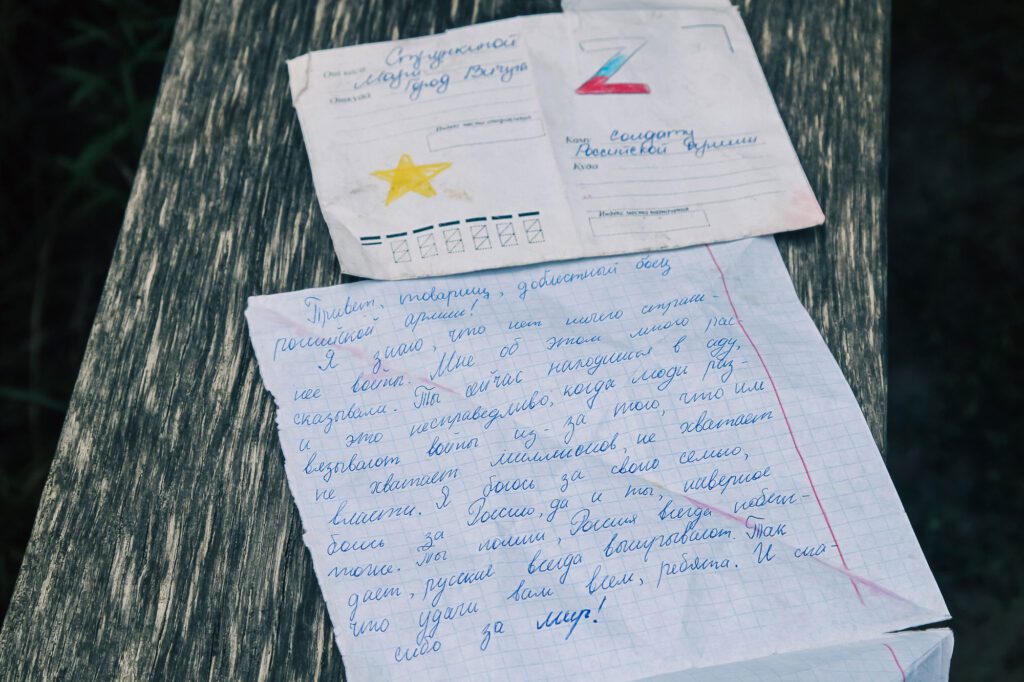 От кого Стулкиной
Марии город Вичуга
Откуда
Индекс места отправления
Z
Кому солдату
Российской Армии
Куда
Индекс места назначения
Привет, товарищ, доблестный боец
российской армии!
Я знаю, что нет ничего страш-
нее войны. Мне об этом много рас-
сказывали. Ты сейчас находишься в аду,
и это несправедливо, когда люди раз-
вязывают войны из-за того, что им
не хватает миллионов, не хватает
власти. Я боюсь за свою семью,
боюсь за Россию, да и ты, наверное
тоже. Ты помни, Россия всегда побеж-
дает, русские всегда выигрывают. Так
что удачи вам всем, ребята. И спа-
сибо за мир!